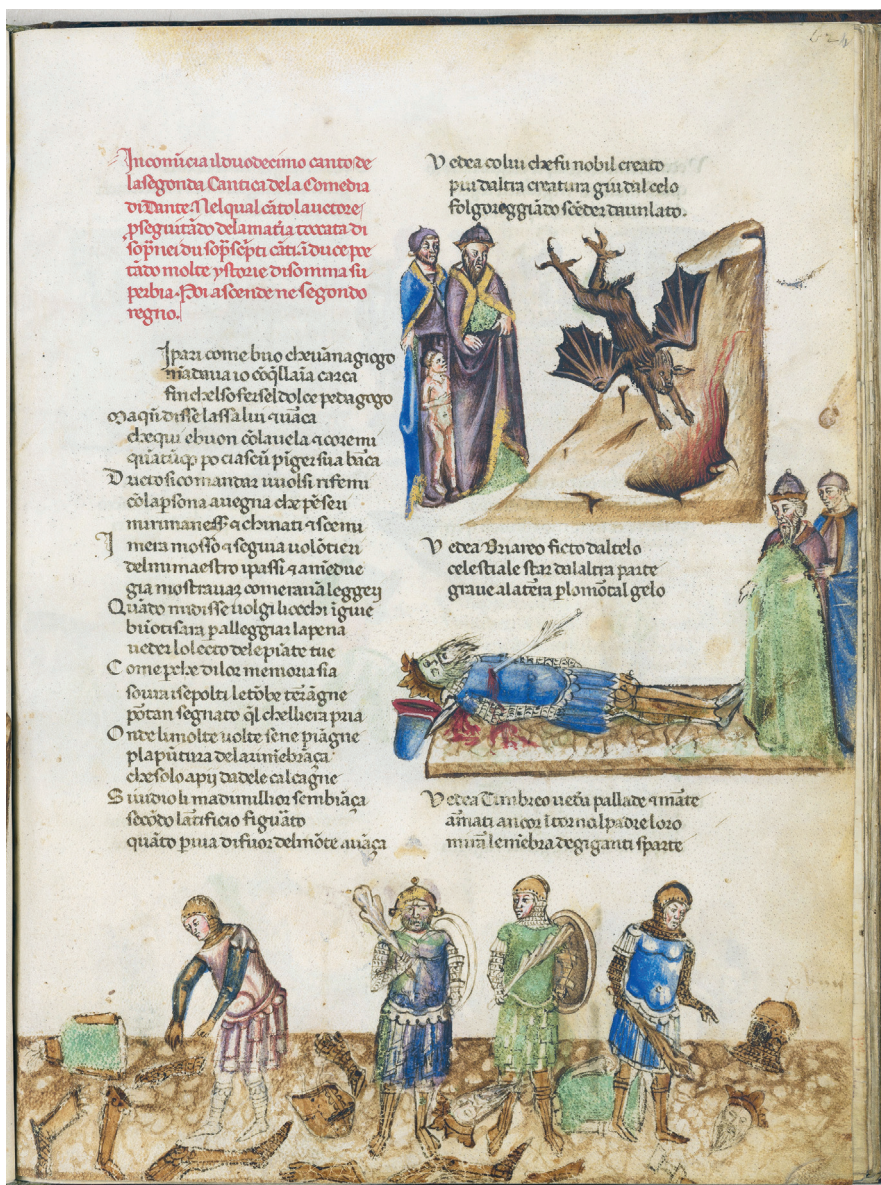 Incomīcia il duodecimo canto de
la segonda Cantica dela Comedia
di Dante. Nel qual cāto lauctore
pseguitādo dela matīa toccata di
molte ystorie di somma su
perbia. Poi ascende ne segondo
regno.
I pari come buo che vān a giogo
madava io
fin chel so ferse l dolce pedagogo
Ma qn̄ disse lassa lui
che qui e buon cō la vela
quātūq po ciascū pīger sua bāca
Dricto si com andar vuolsi rifemi
cō la psona avegna che pēseri
chinati scemi
I mera mosso seguia volōtieri
del mi maestro i passi amedue
gia mostravaz comeravā leggeri
Quādo mi disse volgi li occhi ī giue
palleggiar la
veder lo lecto dele piāte tue
Come pche di lor memoria sia
sovra i sepolti le tōbe terāgne
pōtan segnato ql chelli era pria
Onde li molte volte sene piāgne
p la pūtura dela rimēbrāça
che solo a pij da dele calcagne
Si vidio li ma di millior sembiāça
secōdo lartificio figurato
quāto p via di fuor del mōte avāça
Vedea colui che fu nobil creato
piu daltra creatura giu dal celo
folgoreggiādo scēder da un lato.
Vedea Briareo ficto dal telo
celestiale star da laltra parte
grave a la terra p lo mortal gelo
Vedea Timbreo vedea pallade marte
armati ancor ītorno l padre loro
mirar le mēbra de giganti sparte